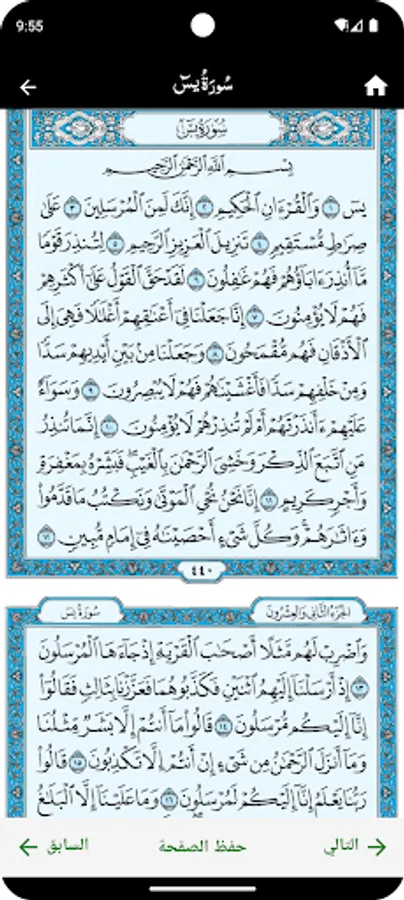 9:55
سُورَةُ يسٓ
سُورَةُ يسٓ
بِسْمِ ٱللَّهِ ٱلرَّحْمَٰنِ ٱلرَّحِيمِ
يسٓ ١ وَٱلْقُرْءَانِ ٱلْحَكِيمِ ٢ إِنَّكَ لَمِنَ ٱلْمُرْسَلِينَ ٣ عَلَىٰ
صِرَٰطٍ مُّسْتَقِيمٍ ٤ تَنزِيلَ ٱلْعَزِيزِ ٱلرَّحِيمِ ٥ لِتُنذِرَ قَوْمًا
مَّآ أُنذِرَ ءَابَآؤُهُمْ فَهُمْ غَٰفِلُونَ ٦ لَقَدْ حَقَّ ٱلْقَوْلُ عَلَىٰٓ أَكْثَرِهِمْ
فَهُمْ لَا يُؤْمِنُونَ ٧ إِنَّا جَعَلْنَا فِىٓ أَعْنَٰقِهِمْ أَغْلَٰلًا فَهِىَ إِلَى
ٱلْأَذْقَانِ فَهُم مُّقْمَحُونَ ٨ وَجَعَلْنَا مِنۢ بَيْنِ أَيْدِيهِمْ سَدًّا
وَمِنْ خَلْفِهِمْ سَدًّا فَأَغْشَيْنَٰهُمْ فَهُمْ لَا يُبْصِرُونَ ٩ وَسَوَآءٌ
عَلَيْهِمْ ءَأَنذَرْتَهُمْ أَمْ لَمْ تُنذِرْهُمْ لَا يُؤْمِنُونَ ١٠ إِنَّمَا تُنذِرُ
مَنِ ٱتَّبَعَ ٱلذِّكْرَ وَخَشِىَ ٱلرَّحْمَٰنَ بِٱلْغَيْبِ ۖ فَبَشِّرْهُ بِمَغْفِرَةٍ
وَأَجْرٍ كَرِيمٍ ١١ إِنَّا نَحْنُ نُحْىِ ٱلْمَوْتَىٰ وَنَكْتُبُ مَا قَدَّمُوا۟
وَءَاثَٰرَهُمْ ۚ وَكُلَّ شَىْءٍ أَحْصَيْنَٰهُ فِىٓ إِمَامٍ مُّبِينٍ ١٢
٤٤٠
الجزء الثاني والعشرون
سُورَةُ يسٓ
وَٱضْرِبْ لَهُم مَّثَلًا أَصْحَٰبَ ٱلْقَرْيَةِ إِذْ جَآءَهَا ٱلْمُرْسَلُونَ
١٣ إِذْ أَرْسَلْنَآ إِلَيْهِمُ ٱثْنَيْنِ فَكَذَّبُوهُمَا فَعَزَّزْنَا بِثَالِثٍ فَقَالُوٓا۟
إِنَّآ إِلَيْكُم مُّرْسَلُونَ ١٤ قَالُوا۟ مَآ أَنتُمْ إِلَّا بَشَرٌ مِّثْلُنَا
وَمَآ أَنزَلَ ٱلرَّحْمَٰنُ مِن شَىْءٍ إِنْ أَنتُمْ إِلَّا تَكْذِبُونَ ١٥ قَالُوا۟
رَبُّنَا يَعْلَمُ إِنَّآ إِلَيْكُمْ لَمُرْسَلُونَ ١٦ وَمَا عَلَيْنَآ إِلَّا ٱلْبَلَٰغُ
التالي
حفظ الصفحة
السابق